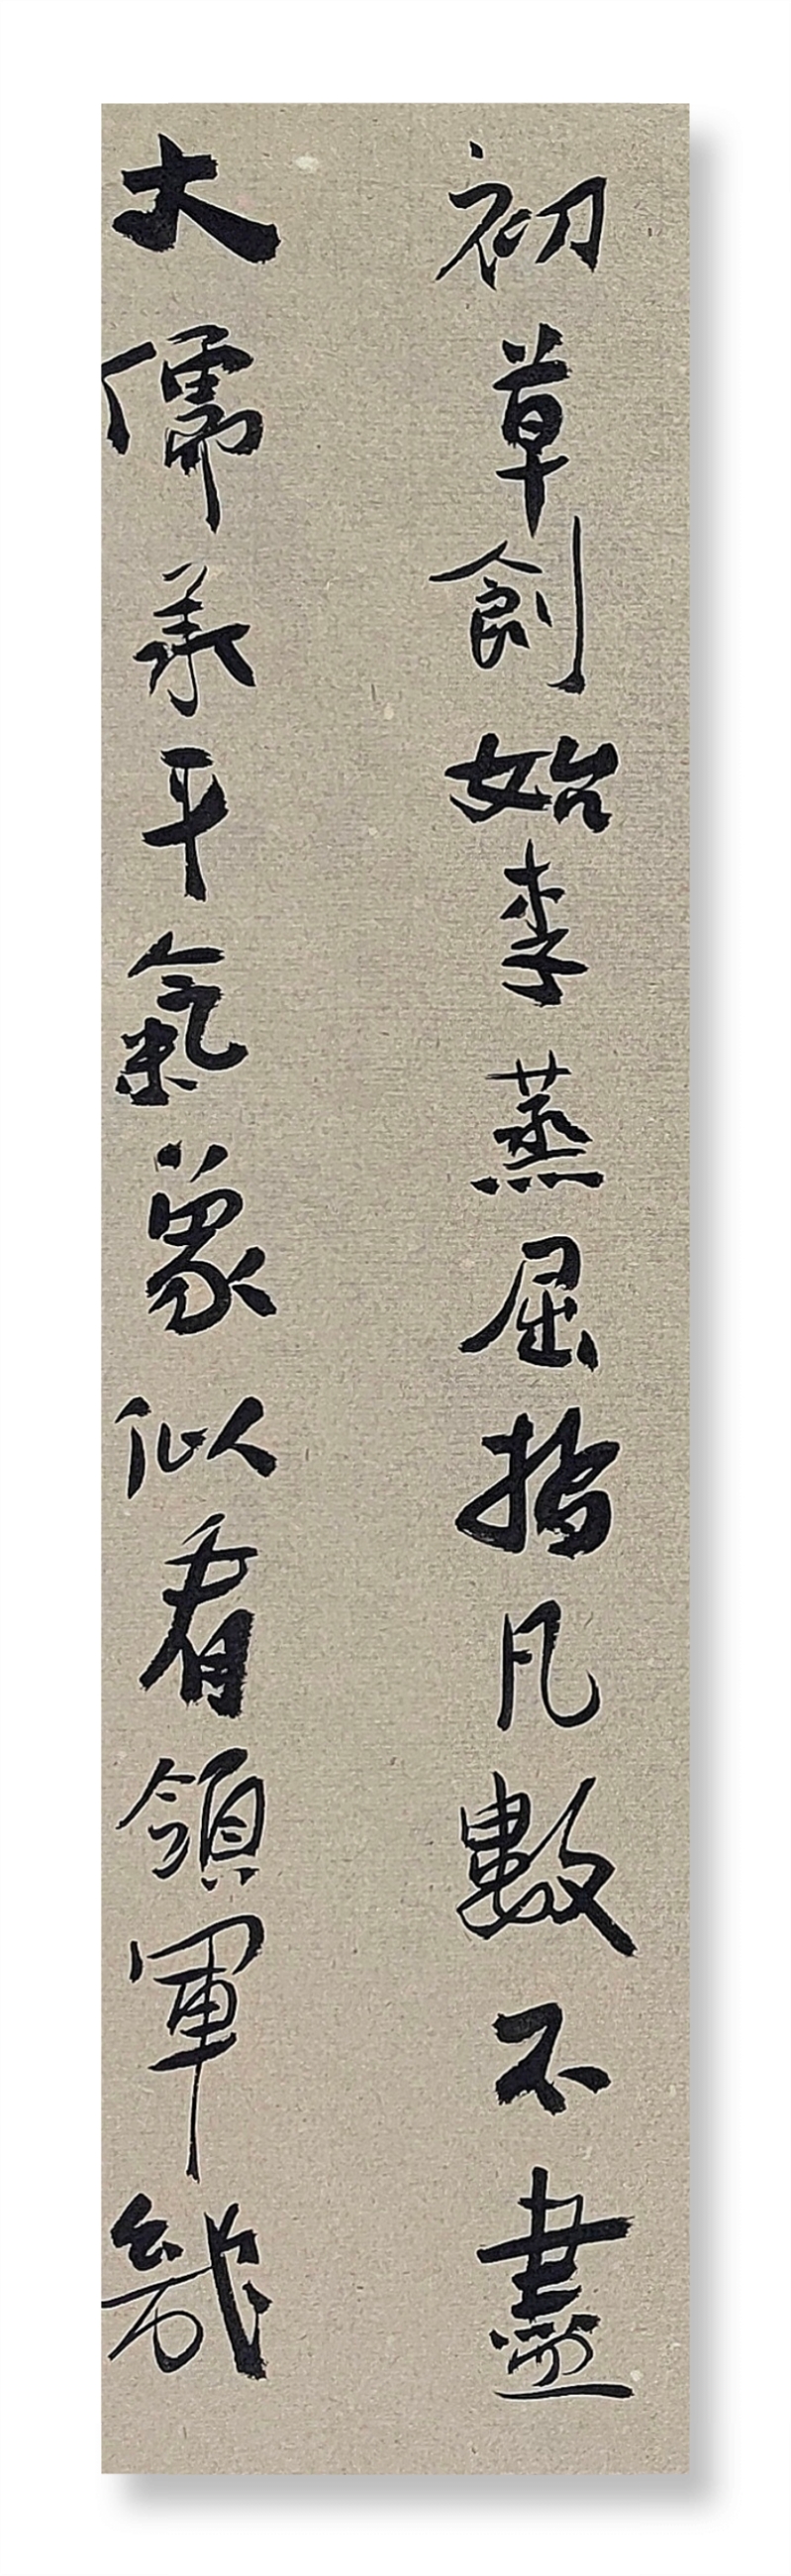 初草創始李蒸屈指凡數不盡
大儒承平氣象似看領軍幾